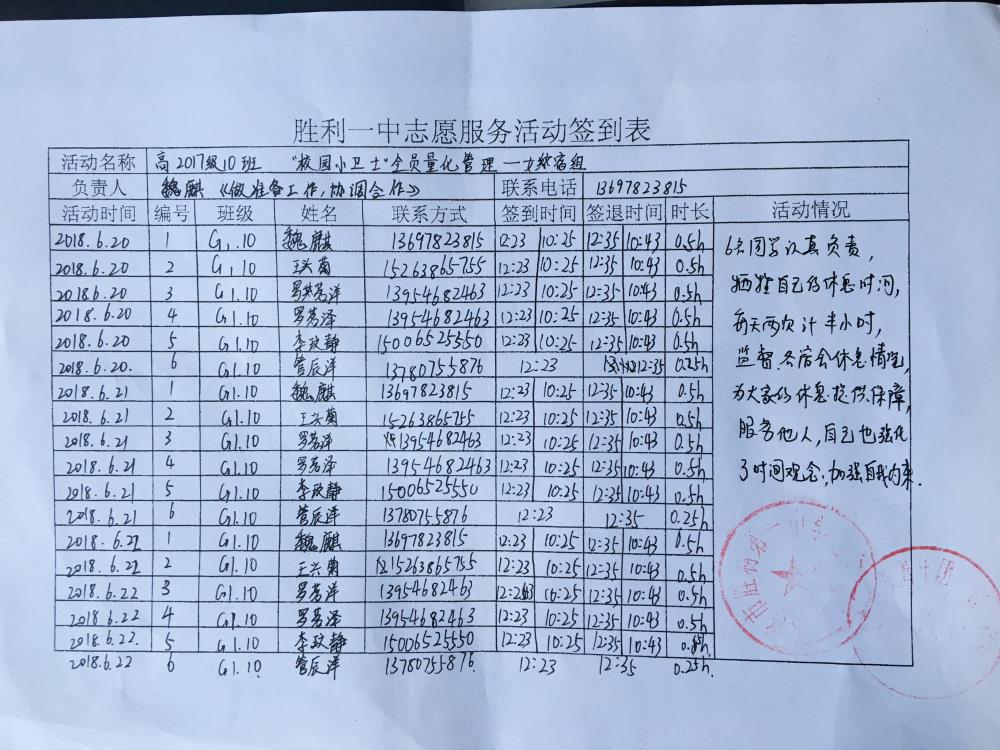 胜利一中志愿服务活动签到表
活动名称 高2017级10班 "校园小卫士"全员量化管理 一女寝宿组
负责人 魏麒 《做准备工作,协调合作》 联系电话 13697823815
活动时间 编号 班级 姓名 联系方式 签到时间 签退时间 时长 活动情况
2018.6.20 1 G1.10 魏麒 13697823815 12:23 10:25 12:35 10:43 0.5h
2018.6.20 2 G1.10 王兴菊 15263865755 12:23 10:25 12:35 10:43 0.5h
2018.6.20 3 G1.10 13954682463 12:23 10:25 12:35 10:43 0.5h
2018.6.20 4 G1.10 罗茗泽 13954682463 12:23 10:25 12:35 10:43 0.5h
2018.6.20 5 G1.10 李玟静 15006525550 12:23 10:25 12:35 10:43 0.5h
2018.6.20. 6 G1.10 管辰洋 13780755876 12:23 12:35 0.25h
2018.6.21 1 G1.10 魏麒 13697823815 12:23 10:25 12:35 10:43 0.5h
2018.6.21 2 G1.10 王兴菊 15263865755 12:23 10:25 12:35 10:43 0.5h
2018.6.21 3 G1.10 罗茗泽 13954682463 12:23 10:25 12:35 10:43 0.5h
2018.6.21 4 G1.10 罗茗泽 13954682463 12:23 10:25 12:35 10:43 0.5h
2018.6.21 5 G1.10 李玟静 15006525550 12:23 10:25 12:35 10:43 0.5h
2018.6.21 6 G1.10 管辰洋 13780755876 12:23 12:35 0.25h
2018.6.22 1 G1.10 魏麒 13697823815 12:23 10:25 12:35 10:43 0.5h
2018.6.22 2 G1.10 王兴菊 15263865755 12:23 10:25 12:35 10:43 0.5h
2018.6.22 3 G1.10 罗茗泽 13954682463 12:23 10:25 12:35 10:43 0.5h
2018.6.22 4 G1.10 罗茗泽 13954682463 12:23 10:25 12:35 10:43 0.5h
2018.6.22. 5 G1.10 李玟静 15006525550 12:23 10:25 12:35 10:43 0.5h
2018.6.22 6 G1.10 管辰洋 13780755876. 12:23 12:35 0.25h.
6名同学认真负责,
牺牲自己的休息时间,
每天两次计半小时,
监督各宿舍休息情况,
为大家的休息提供保障,
服务他人,自己也强化
了时间观念,加强自我约束.